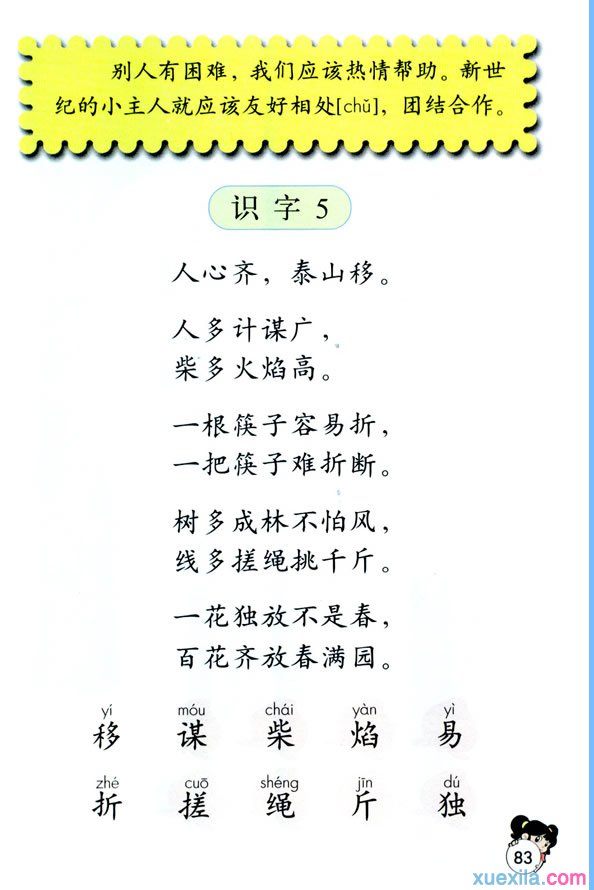 别人有困难，我们应该热情帮助。新世
纪的小主人就应该友好相处[chǔ]，团结合作。
识字5
人心齐，泰山移。
人多计谋广，
柴多火焰高。
一根筷子容易折，
一把筷子难折断。
树多成林不怕风，
线多搓绳挑千斤。
一花独放不是春，
百花齐放春满园。
yí móu chái yàn yì
移 谋 柴 焰 易
zhé cuō shéng jīn dú
折 搓 绳 斤 独
83
xuexila.com